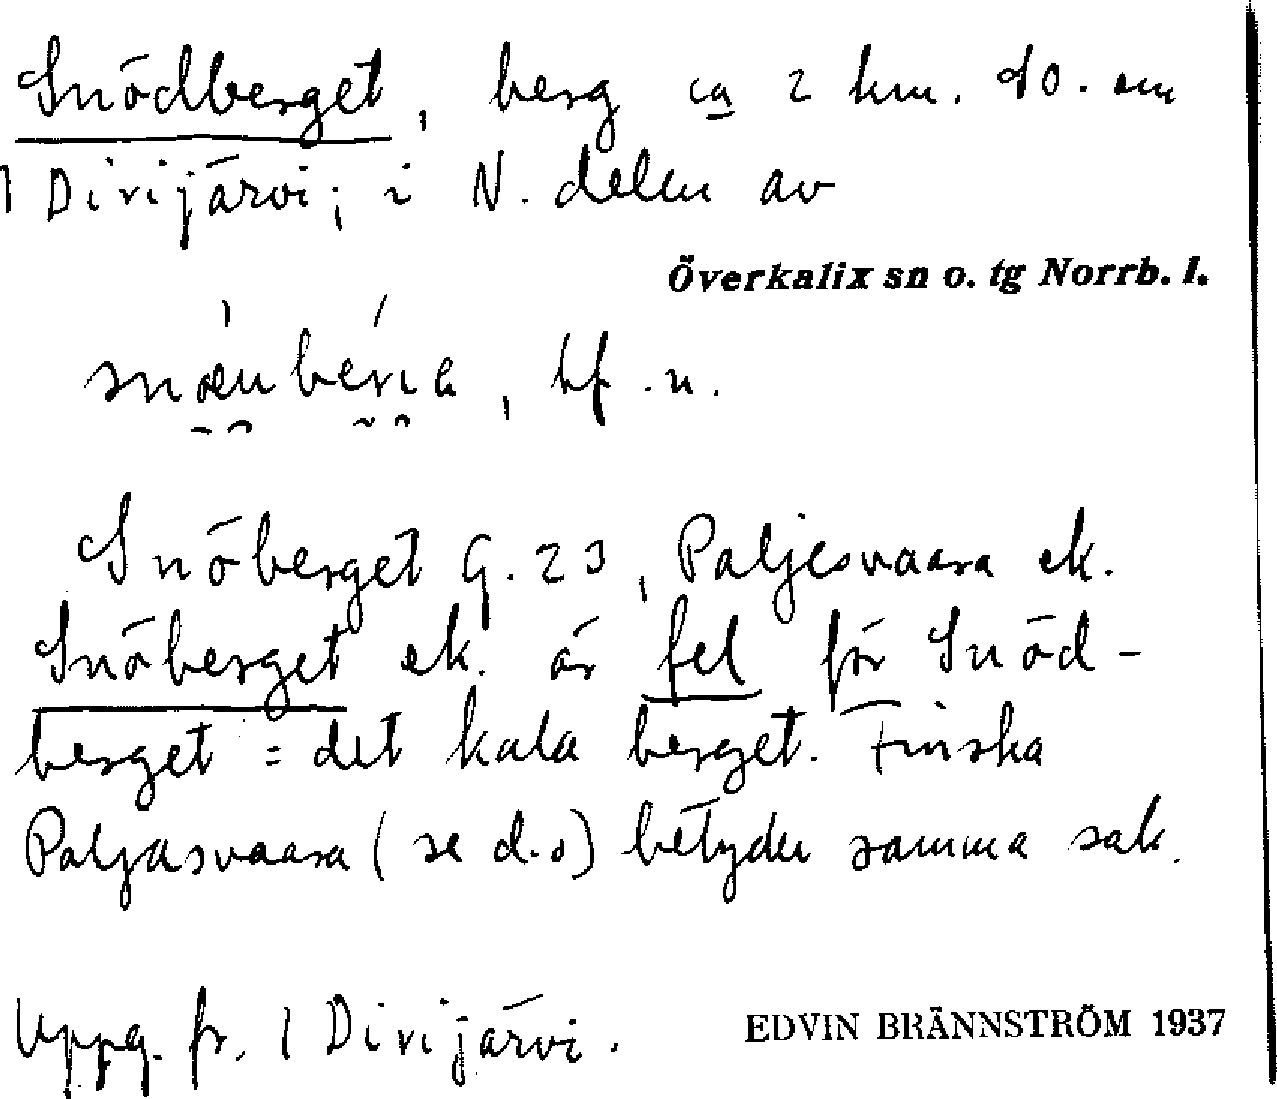 Snödberget, berg ca 2 km. SO. om
1 Divijärvi; i N. delen av
Överkalix sn o. tg Norrb. l.
bf. n.
Snöberget G. 23, Paljesvaara ek.
Snöberget ek. är fel för Snöd-
berget = det kala berget. Finska
Paljasvaara (se d.o) betyder samma sak.
Uppg. fr. 1 Divijärvi.
EDVIN BRÄNNSTRÖM 1937